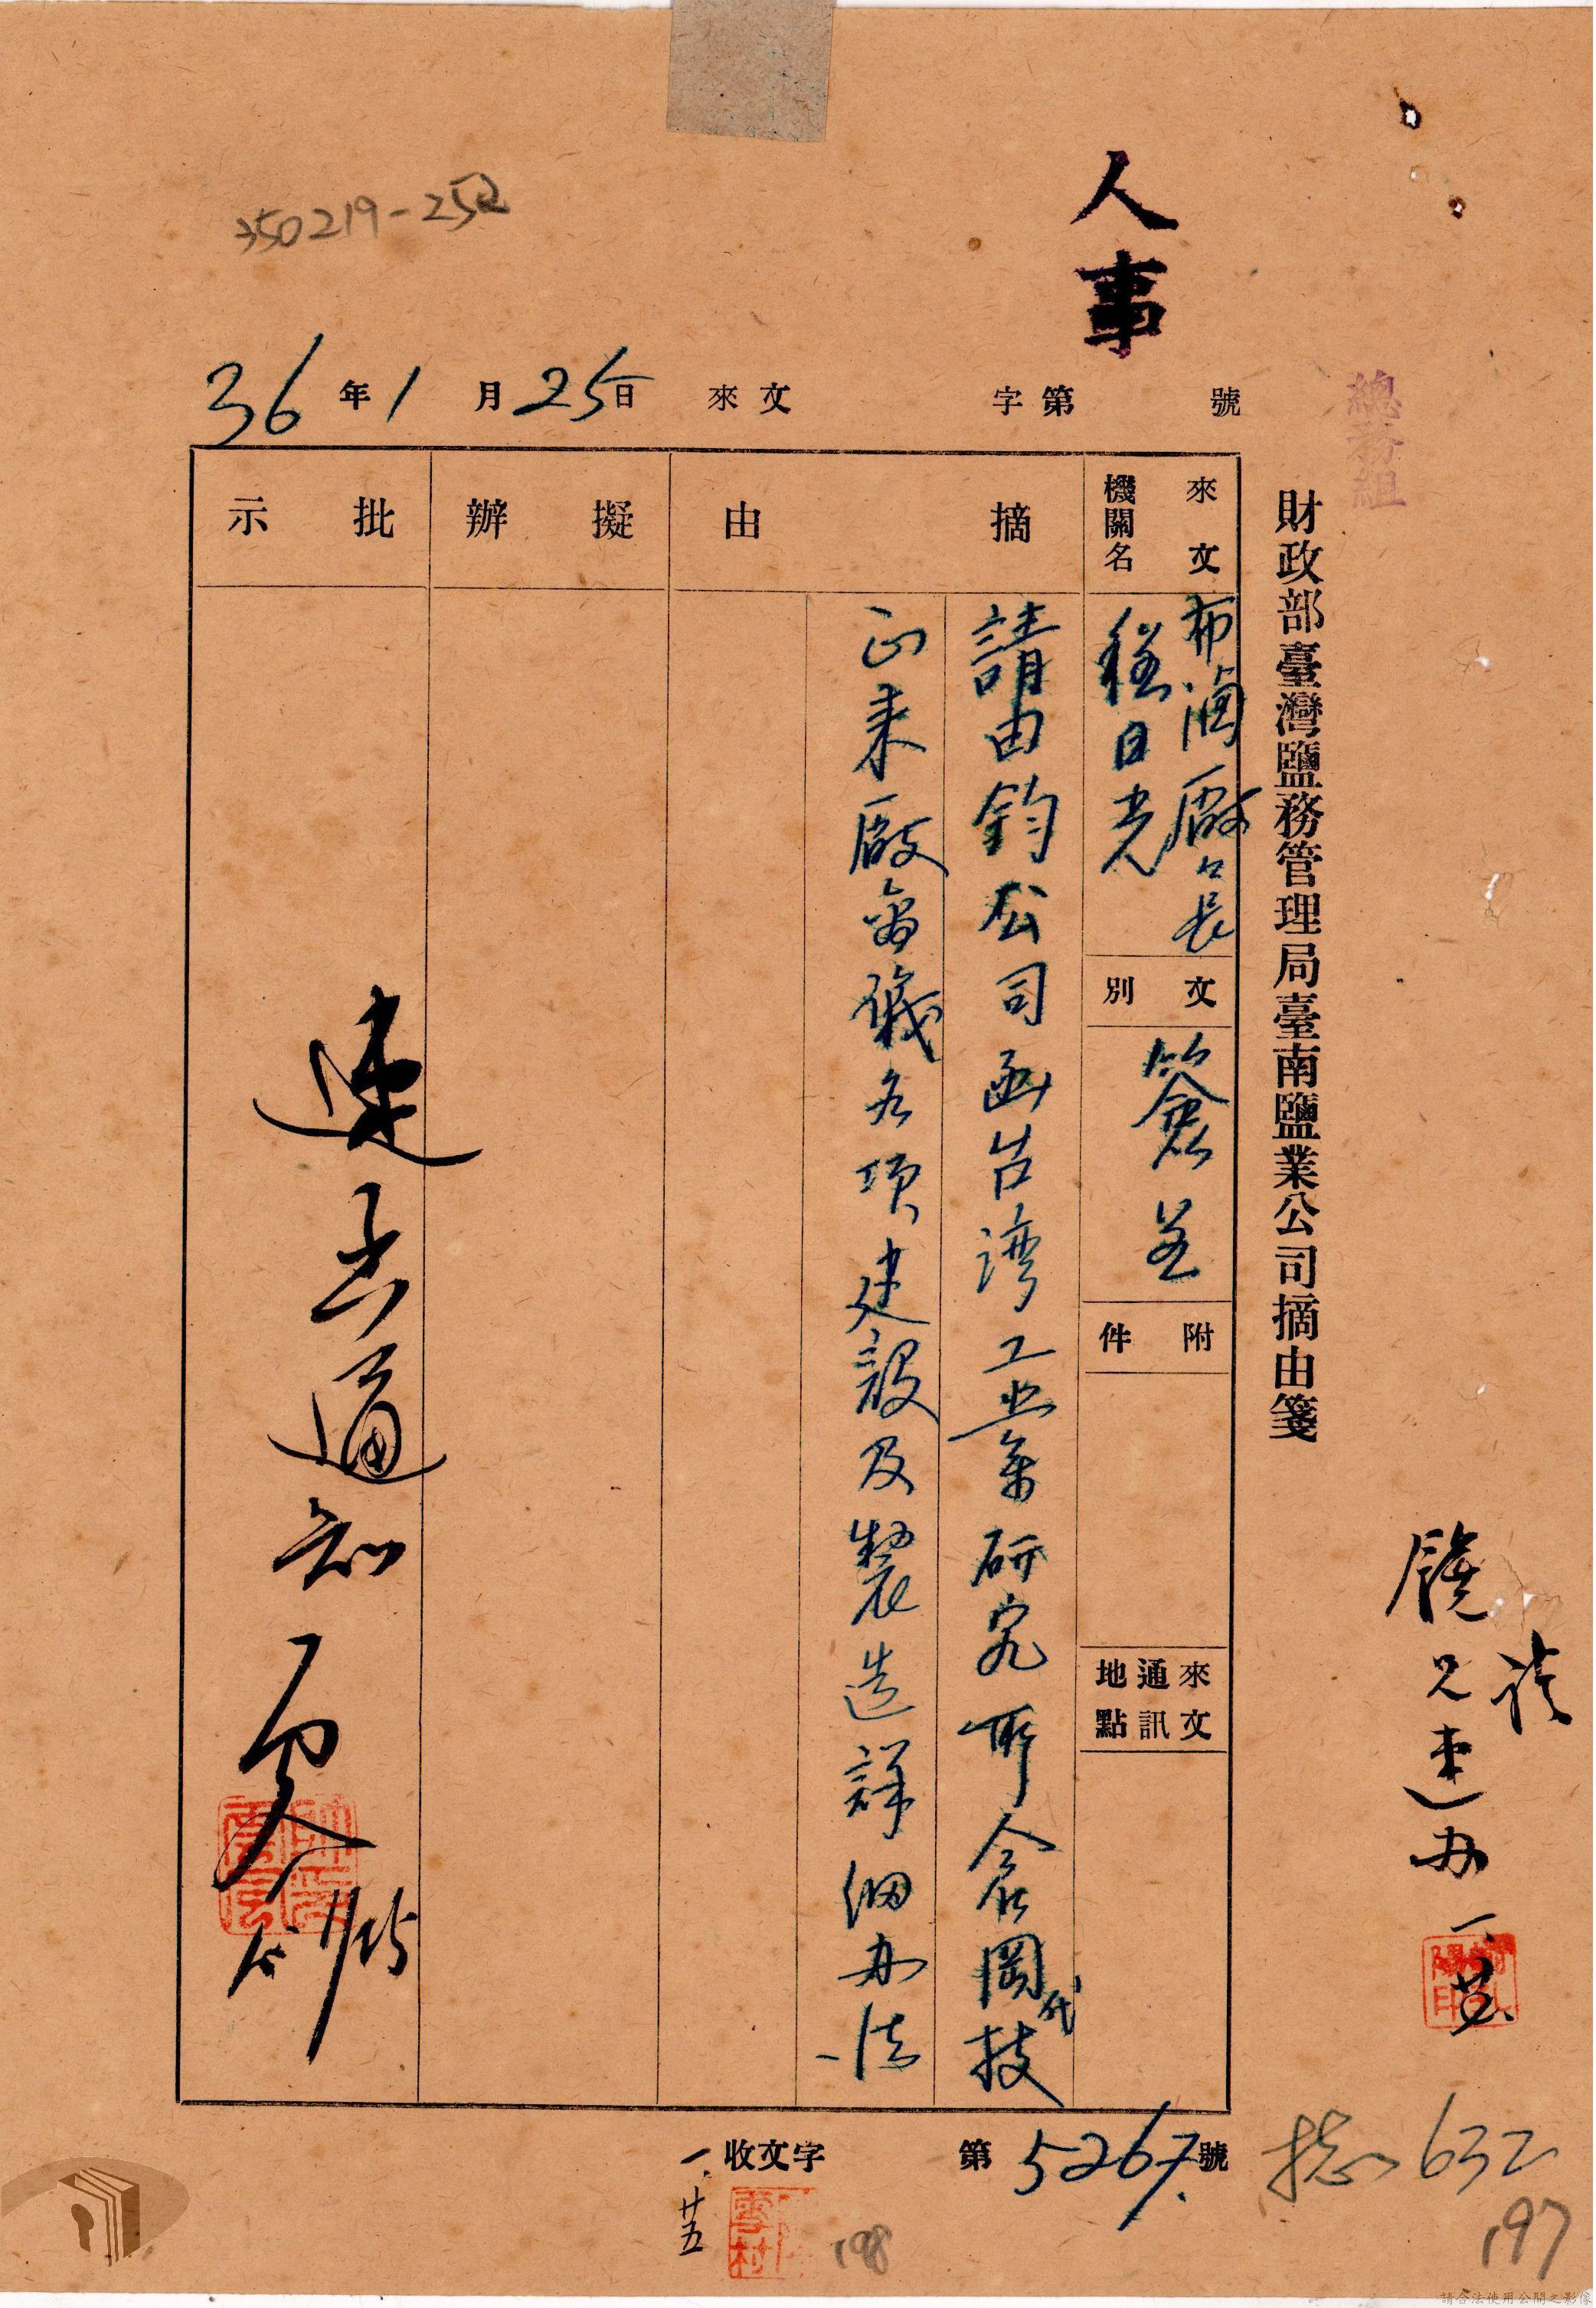 人事
350219-252
36年1月25日來文 字第 號
總務組
財政部臺灣鹽務管理局臺南鹽業公司摘由箋
來文機關名
布滷廠廠長
程日光
文別
簽呈
附件
來文通訊地點
摘由
請由鈞公司函台灣工業研究所令岡代技
正來廠商議各項建設及製造詳細办法
擬辦
批示
速去通知
1/25
兄速办
一.
收文字第5267號
一.廿五
雲村
總632
197
198
請合法使用公開之影像